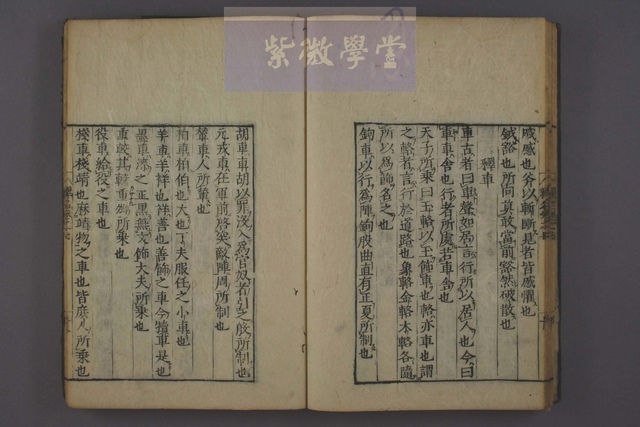 紫微學堂
戚感也斧以斬斷見者皆感懼也
鉞豁也所向莫敢當前豁然破散也
釋車
車古者曰車聲如居言行所以居人也今曰
車車舍也行者所處若車舍也
天子所乘曰玉輅以玉飾車也輅亦車也謂
之輅者言行於道路也象輅金輅木輅各隨
所以爲飾名之也
鉤車以行爲陣鉤股曲直有正夏所制也
胡車車胡以罪沒入爲官奴者引之殷所制也
元戎車在軍前啓突敵陣周所制也
輦車人所輦也
柏車柏伯也大也丁夫服任之小車也
羊車羊祥也祥善也善飾之車今犢車是也
墨車漆之正黑無文飾大夫所乘也
重較其較重卿所乘也
役車給役之車也
棧車棧靖也麻靖物之車也皆庶人所乘也